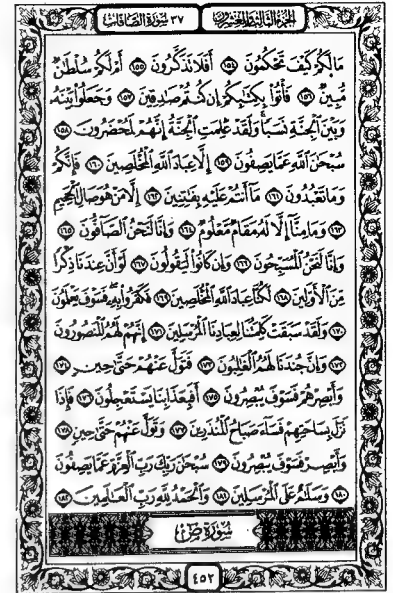 الجزء الثالث والعشرون ٣٧ سورة الصافات
مَا لَكُمْ كَيْفَ تَحْكُمُونَ ١٥٤ أَفَلَا تَذَكَّرُونَ ١٥٥ أَمْ لَكُمْ سُلْطَٰنٌ
مُّبِينٌ ١٥٦ فَأْتُوا۟ بِكِتَٰبِكُمْ إِن كُنتُمْ صَٰدِقِينَ ١٥٧ وَجَعَلُوا۟ بَيْنَهُۥ
وَبَيْنَ ٱلْجِنَّةِ نَسَبًا وَلَقَدْ عَلِمَتِ ٱلْجِنَّةُ إِنَّهُمْ لَمُحْضَرُونَ ١٥٨
سُبْحَٰنَ ٱللَّهِ عَمَّا يَصِفُونَ ١٥٩ إِلَّا عِبَادَ ٱللَّهِ ٱلْمُخْلَصِينَ ١٦٠ فَإِنَّكُمْ
وَمَا تَعْبُدُونَ ١٦١ مَآ أَنتُمْ عَلَيْهِ بِفَٰتِنِينَ ١٦٢ إِلَّا مَنْ هُوَ صَالِ ٱلْجَحِيمِ
١٦٣ وَمَا مِنَّآ إِلَّا لَهُۥ مَقَامٌ مَّعْلُومٌ ١٦٤ وَإِنَّا لَنَحْنُ ٱلصَّآفُّونَ ١٦٥
وَإِنَّا لَنَحْنُ ٱلْمُسَبِّحُونَ ١٦٦ وَإِن كَانُوا۟ لَيَقُولُونَ ١٦٧ لَوْ أَنَّ عِندَنَا ذِكْرًا
مِّنَ ٱلْأَوَّلِينَ ١٦٨ لَكُنَّا عِبَادَ ٱللَّهِ ٱلْمُخْلَصِينَ ١٦٩ فَكَفَرُوا۟ بِهِۦ فَسَوْفَ يَعْلَمُونَ
١٧٠ وَلَقَدْ سَبَقَتْ كَلِمَتُنَا لِعِبَادِنَا ٱلْمُرْسَلِينَ ١٧١ إِنَّهُمْ لَهُمُ ٱلْمَنصُورُونَ
١٧٢ وَإِنَّ جُندَنَا لَهُمُ ٱلْغَٰلِبُونَ ١٧٣ فَتَوَلَّ عَنْهُمْ حَتَّىٰ حِينٍ ١٧٤
وَأَبْصِرْهُمْ فَسَوْفَ يُبْصِرُونَ ١٧٥ أَفَبِعَذَابِنَا يَسْتَعْجِلُونَ ١٧٦ فَإِذَا
نَزَلَ بِسَاحَتِهِمْ فَسَآءَ صَبَاحُ ٱلْمُنذَرِينَ ١٧٧ وَتَوَلَّ عَنْهُمْ حَتَّىٰ حِينٍ ١٧٨
وَأَبْصِرْ فَسَوْفَ يُبْصِرُونَ ١٧٩ سُبْحَٰنَ رَبِّكَ رَبِّ ٱلْعِزَّةِ عَمَّا يَصِفُونَ
١٨٠ وَسَلَٰمٌ عَلَى ٱلْمُرْسَلِينَ ١٨١ وَٱلْحَمْدُ لِلَّهِ رَبِّ ٱلْعَٰلَمِينَ ١٨٢
سُورَةُ صٓ
٤٥٢